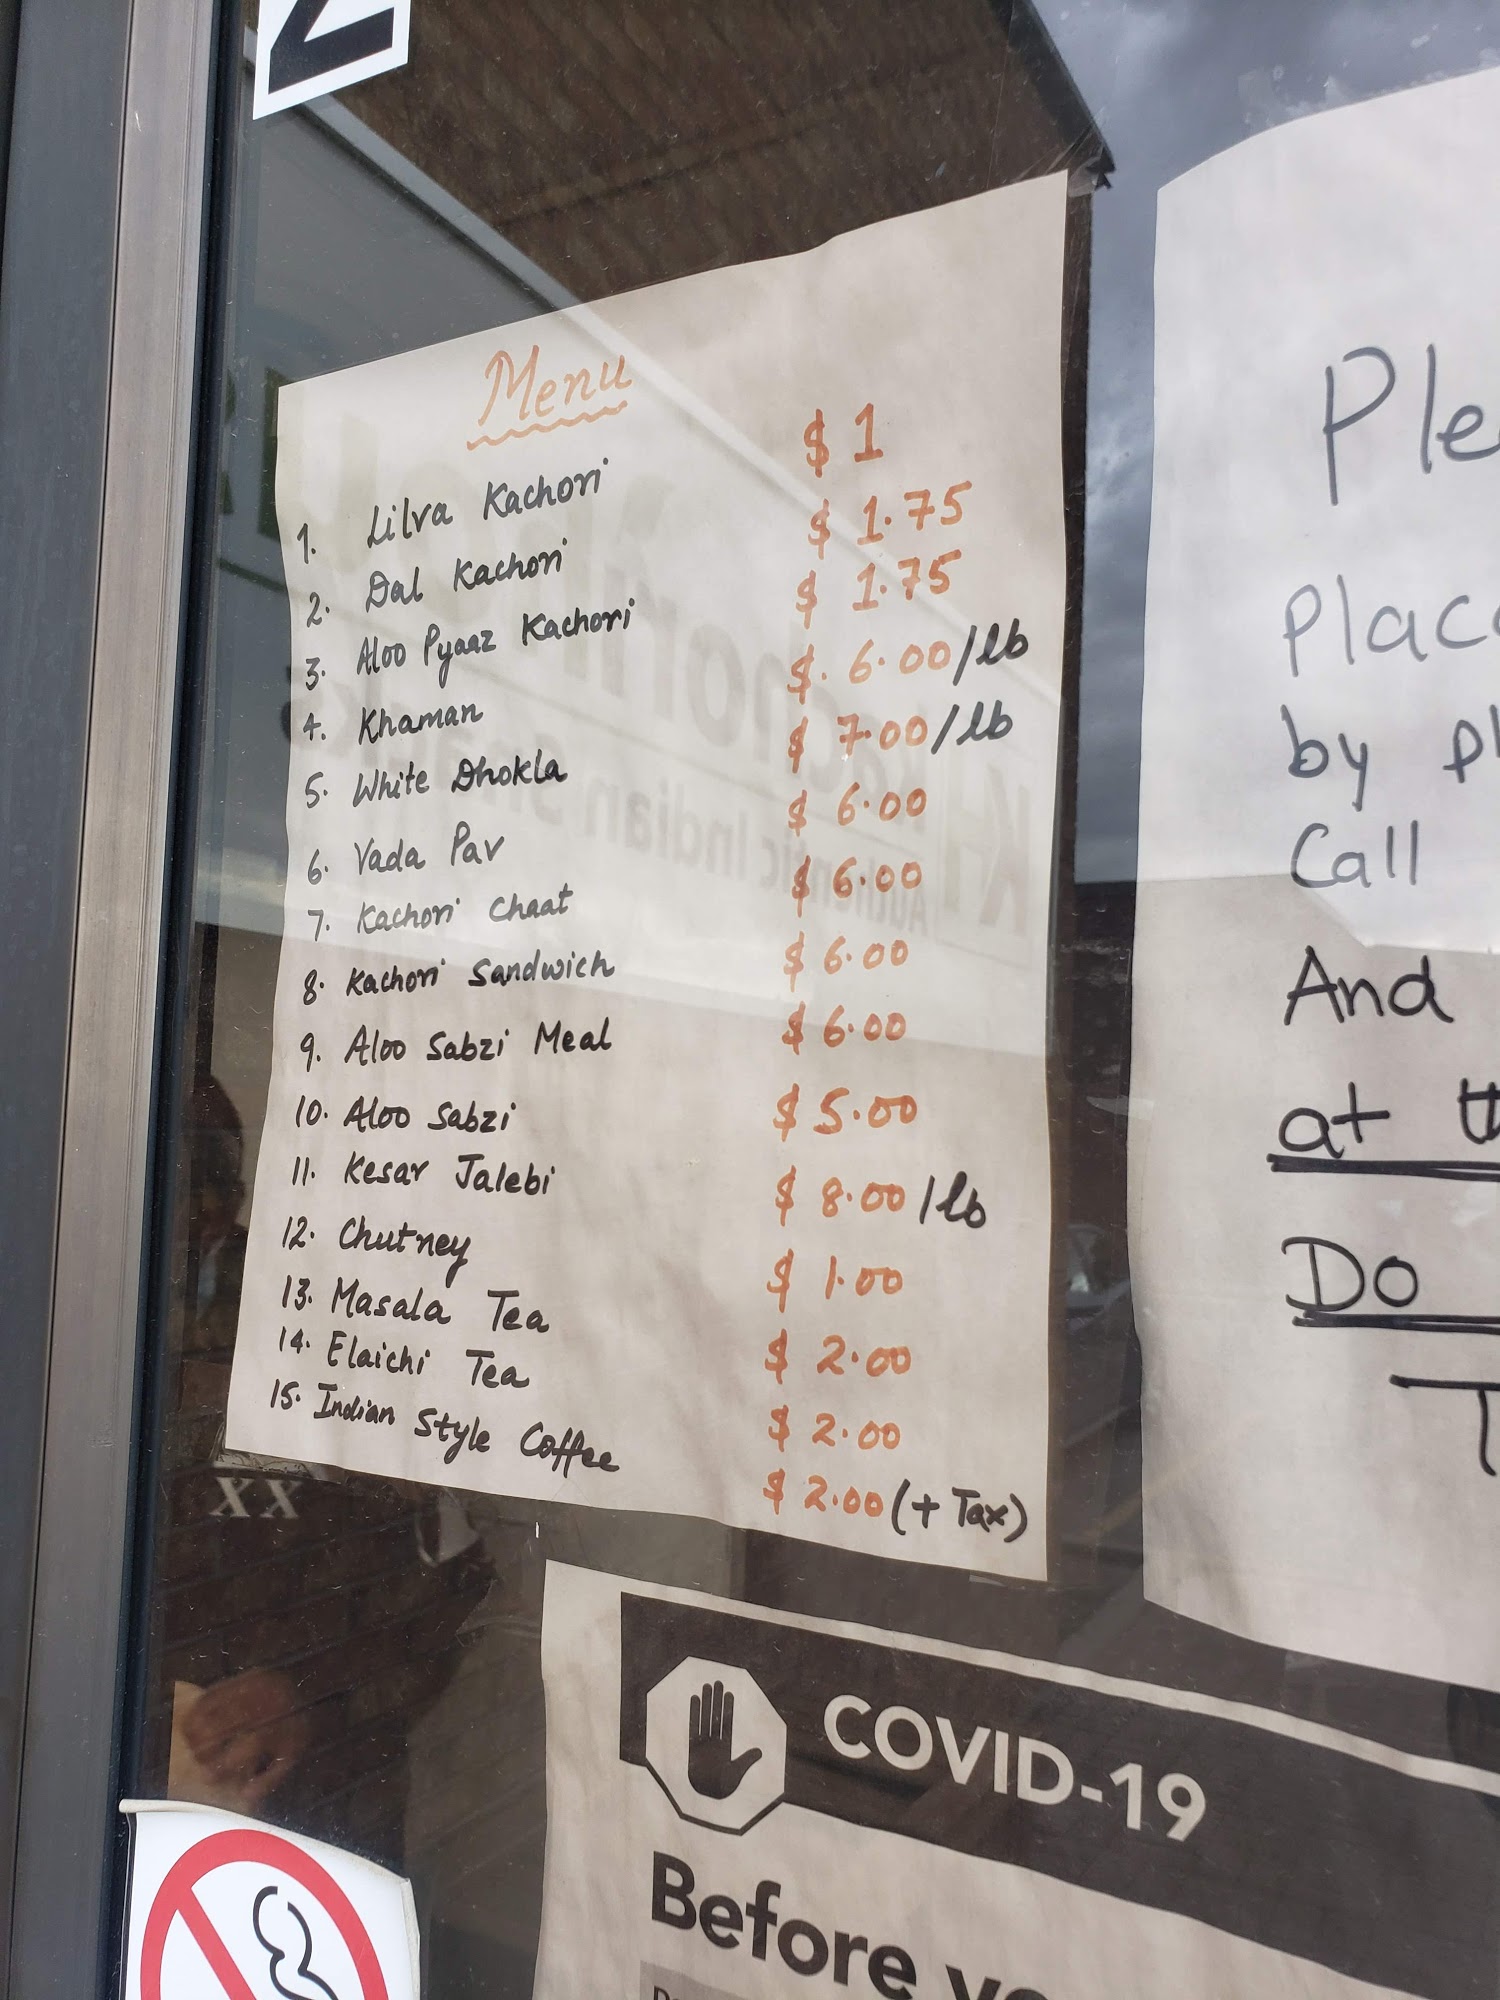 Menu
1. Lilva Kachori $ 1
2. Dal Kachori $ 1.75
3. Aloo Pyaaz Kachori $ 1.75
4. Khaman $. 6.00/lb
5. White Dhokla $ 7.00/lb
6. Vada Pav $ 6.00
7. Kachori Chaat $ 6.00
8. Kachori Sandwich $ 6.00
9. Aloo Sabzi Meal $ 6.00
10. Aloo Sabzi $ 5.00
11. Kesar Jalebi $ 8.00/lb
12. Chutney $ 1.00
13. Masala Tea $ 2.00
14. Elaichi Tea $ 2.00
15. Indian Style Coffee $ 2.00 (+ Tax)
Ple
Plac
by pl
Call
And
at th
Do
T
XX
COVID-19
Before